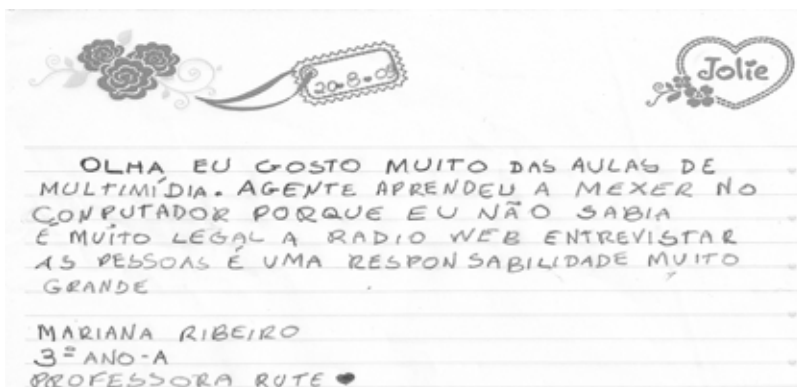 20.8.09
Jolie
OLHA EU GOSTO MUITO DAS AULAS DE
MULTIMÍDIA. AGENTE APRENDEU A MEXER NO
CONPUTADOR PORQUE EU NÃO SABIA
É MUITO LEGAL A RADIO WEB ENTREVISTAR
AS PESSOAS É UMA RESPONSABILIDADE MUITO
GRANDE
MARIANA RIBEIRO
3º ANO-A
PROFESSORA RUTE ♥